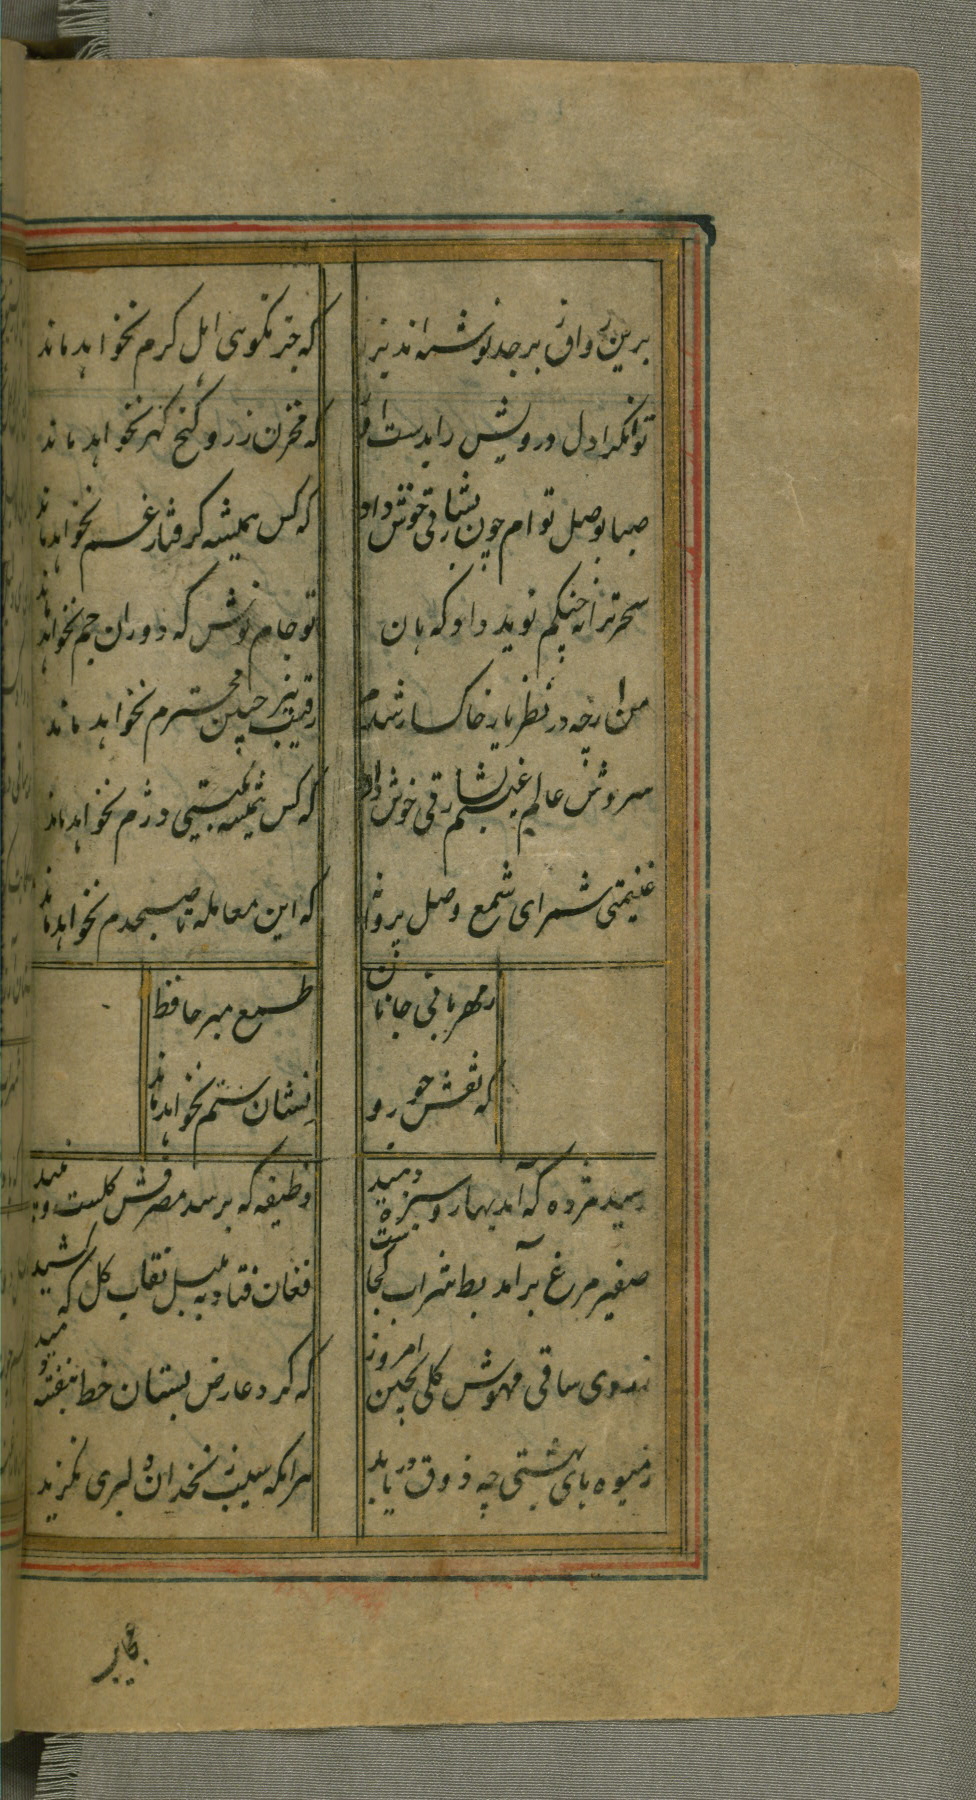 برین رواق زبرجد نوشته اند بزر که جز نکوی اهل کرم نخواهد ماند
توانکرا دل درویش را بدست آر که مخزن زر و کنج کهر نخواهد ماند
صبا بوصل توام چون بشارتی خوش داد که کس همیشه کرفتار غم نخواهد ماند
سحر ترانه چنکم نوید داد که هان تو جام نوش که دوران جم نخواهد ماند
من ارچه در نظر یار خاکسار شدم رقیب نیز چنین محترم نخواهد ماند
سروش عالم غیبم بشارتی خوش داد که کس همیشه بکیتی دژم نخواهد ماند
غنیمتی شمر ای شمع وصل پروانه که این معامله تا صبحدم نخواهد ماند
ز مهربانی جانان طمع مبر حافظ
که نقش جور و نشان ستم نخواهد ماند
رسید مژده که آمد بهار و سبزه دمید وظیفه کر برسد مصرفش کلست و نبید
صفیر مرغ برآمد بط شراب کجاست فغان فتاد به بلبل نقاب کل که کشید
ز روی ساقی مهوش کلی بچین امروز که کرد عارض بستان خط بنفشه دمید
ز میوه های بهشتی چه ذوق دریابد هرانکه سیب زنخدان دلبری نکزید